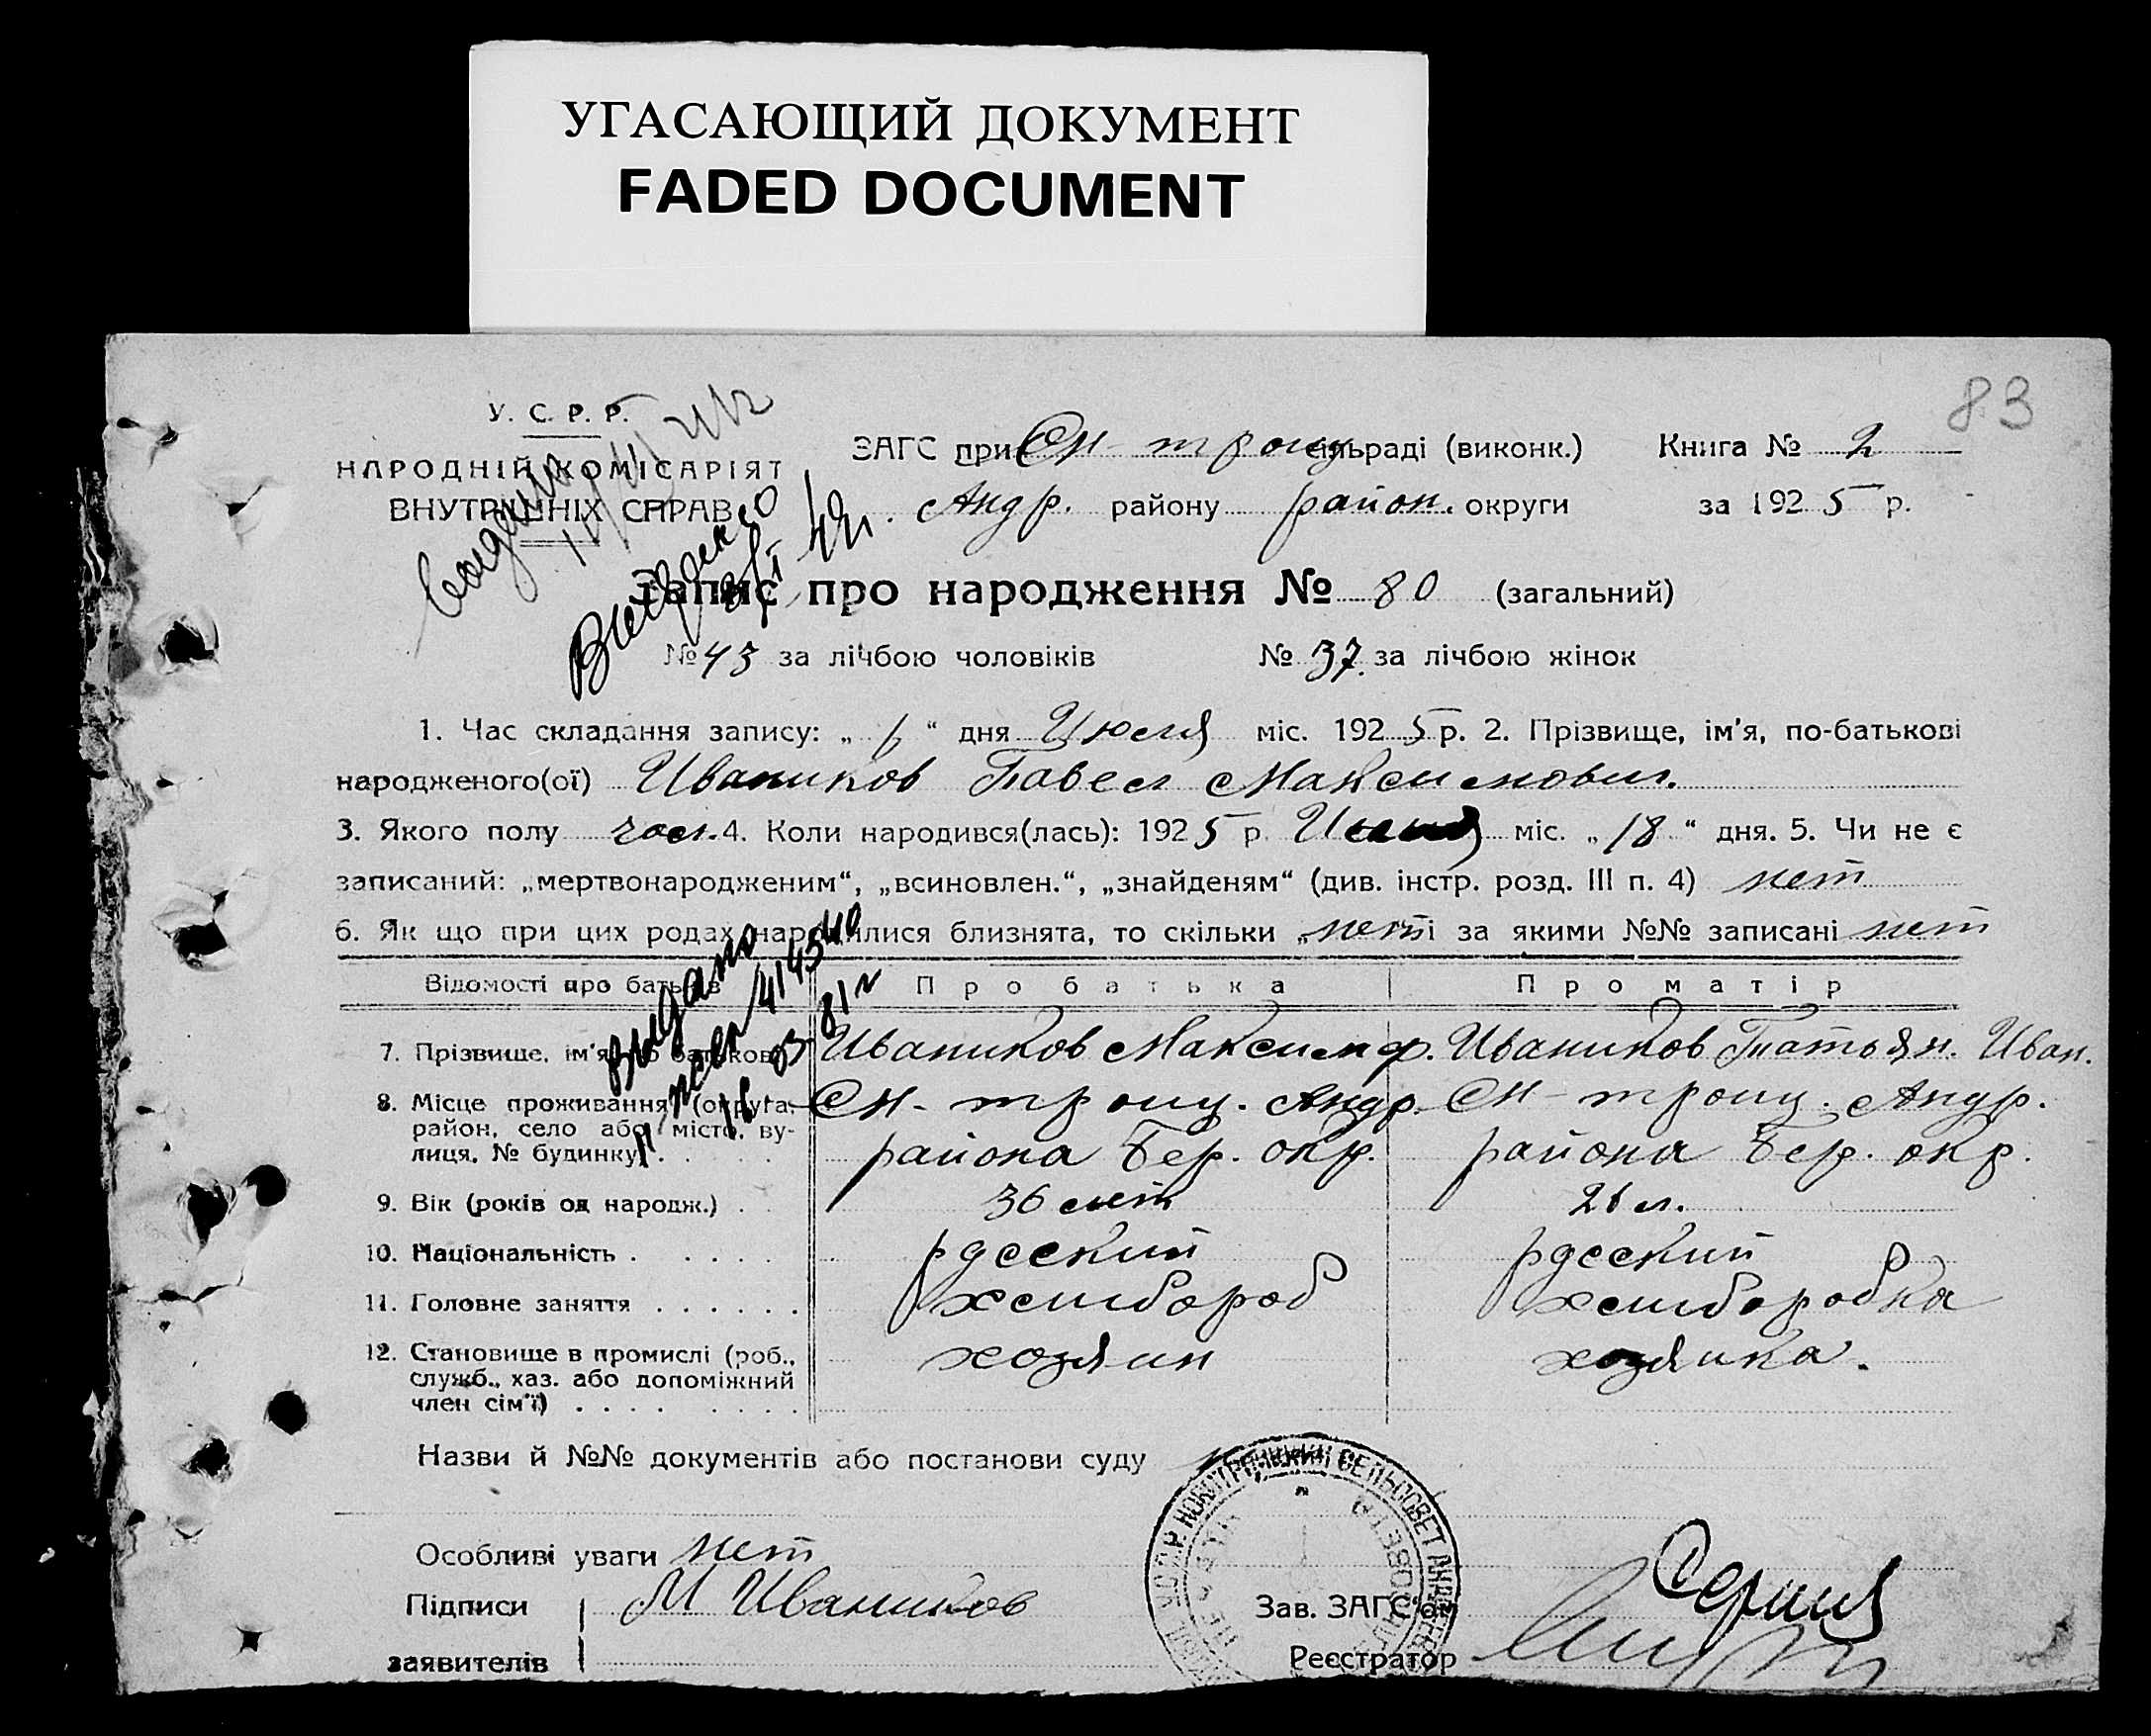 УГАСАЮЩИЙ ДОКУМЕНТ
FADED DOCUMENT
83
У. С. Р. Р.
НАРОДНІЙ КОМІСАРІЯТ
ВНУТРІШНІХ СПРАВ
ЗАГС при Сп-троиц сільраді (виконк.) Книга № 2
Андр. району район. округи за 1925 р.
Запис про народження № 80 (загальний)
№ 43 за лічбою чоловіків № 37. за лічбою жінок
1. Час складання запису: „ “ дня Июля міс. 1925 р. 2. Прізвище, ім'я, по-батькові
народженого(ої) Иваников Павел Максимович.
3. Якого полу 4. Коли народився(лась): 1925 р. міс. „18“ дня. 5. Чи не є
записаний: „мертвонародженим“, „всиновлен.“, „знайденям“ (див. інстр. розд. III п. 4) нет
6. Як що при цих родах народилися близнята, то скільки „нет і за якими №№ записані нет
Відомості про батьків Про батька Про матір
7. Прізвище, ім'я, по батькові Иваников Максим ф. Иваников Татьян. Иван.
8. Місце проживання (округа, Сп-троиц. Андр. Сп-троиц. Андр.
район, село або місто, ву-
лиця, № будинку) района Бер. окр. района Бер. окр.
9. Вік (років од народж.) 36 лет 26 л.
10. Національність русский русский
11. Головне заняття хлибороб хлиборобка
12. Становище в промислі (роб., хозяин хозяика.
служб., хаз. або допоміжний
член сім'ї)
Назви й №№ документів або постанови суду
Особливі уваги нет
Підписи М Иваников Зав. ЗАГС'ом
заявителів Реєстратор
Видано